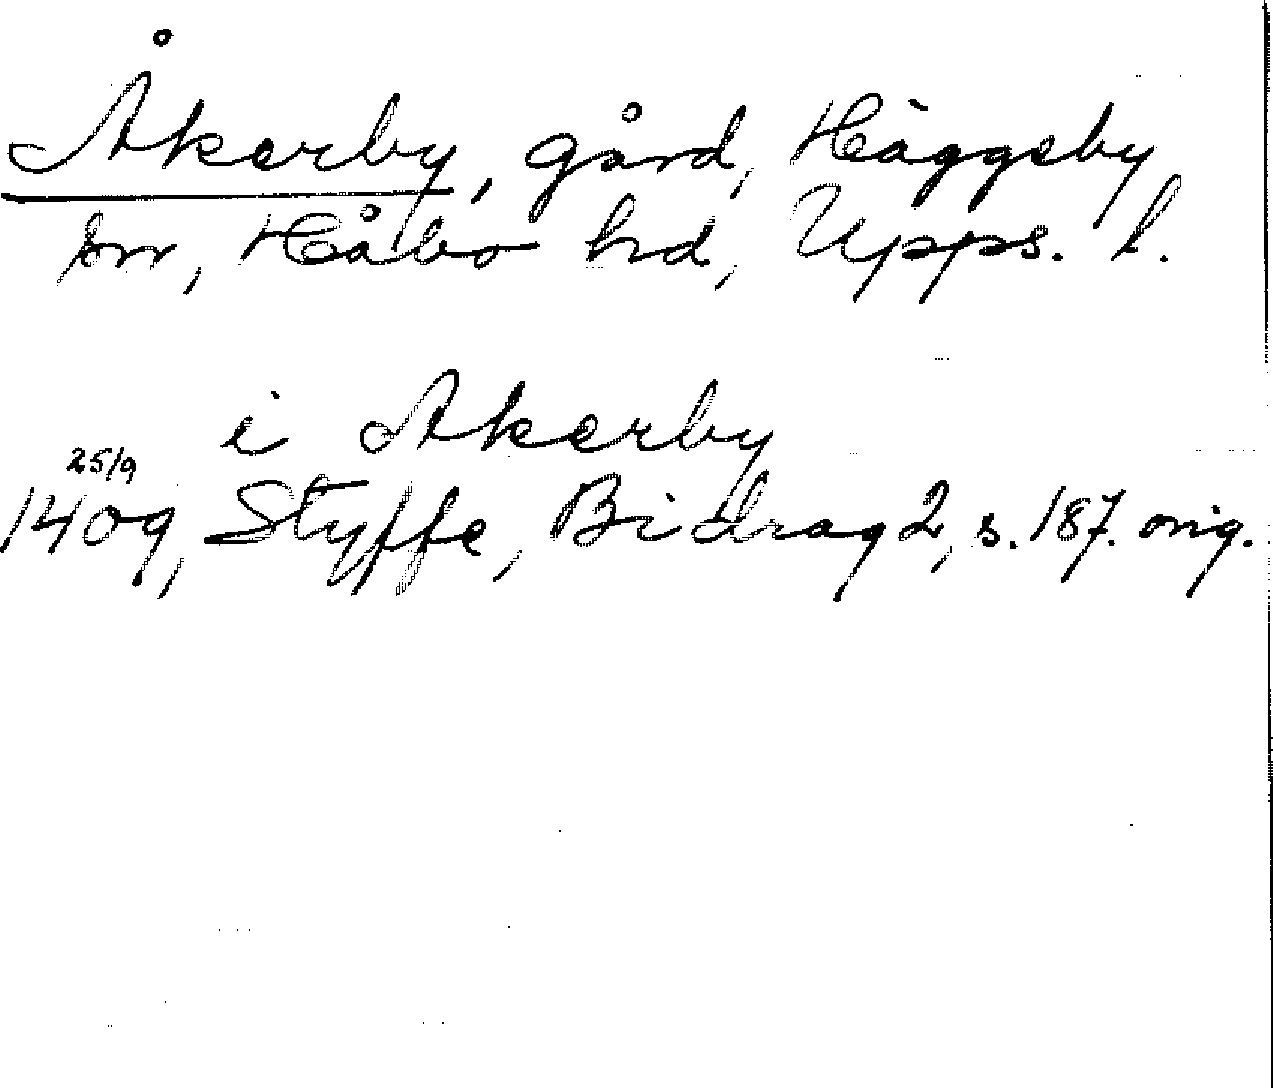 Åkerby, gård, Häggeby
sn, Håbo hd, Upps. l.
i Akerby
25/9
1409, Styffe, Bidrag 2, s. 187. orig.